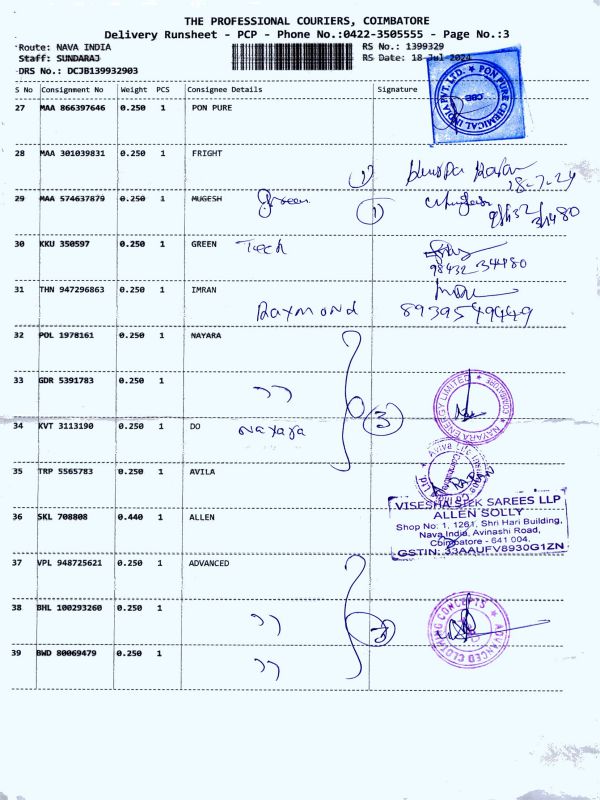 THE PROFESSIONAL COURIERS, COIMBATORE
Delivery Runsheet - PCP - Phone No.:0422-3505555 - Page No.:3
Route: NAVA INDIA
RS No.: 1399329
Staff: SUNDARAJ
RS Date: 18-Jul-2024
DRS No.: DCJB139932903
S No Consignment No Weight PCS Consignee Details Signature
27 MAA 866397646 0.250 1 PON PURE
PON PURE CHEMICAL INDIA PVT. LTD.
CBE
28 MAA 301039831 0.250 1 FRIGHT
1)
18-7-24
29 MAA 574637879 0.250 1 MUGESH green
1
30 KKU 350597 0.250 1 GREEN Tech
98432 34480
31 THN 947296863 0.250 1 IMRAN
Raymond 8939549449
32 POL 1978161 0.250 1 NAYARA
33 GDR 5391783 0.250 1 ))
NAYARA ENERGY LIMITED
COIMBATORE
34 KVT 3113190 0.250 1 DO Nayara 3
35 TRP 5565783 0.250 1 AVILA
36 SKL 708808 0.440 1 ALLEN
VISESHA SILK SAREES LLP
ALLEN SOLLY
Shop No: 1, 1261, Shri Hari Building,
Nava India, Avinashi Road,
Coimbatore - 641 004.
GSTIN: 33AAUFV8930G1ZN
37 VPL 948725621 0.250 1 ADVANCED
38 BHL 100293260 0.250 1 )) 3
ADVANCED CLOTHING CONCEPTS
39 BWD 80069479 0.250 1 ))